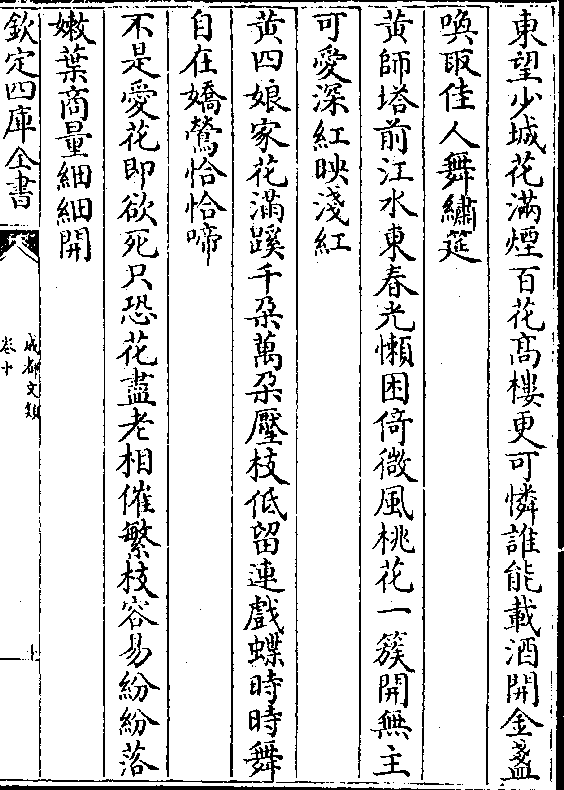 東望少城花滿煙百花髙樓更可憐誰能載酒開金盞
喚取佳人舞繡筵
黄師塔前江水東春光懶困倚微風桃花一簇開無主
可愛深紅映淺紅
黄四娘家花滿蹊千朶萬朶壓枝低留連戲蝶時時舞
自在嬌鶯恰恰啼
不是愛花即欲死只恐花盡老相催繁枝容易紛紛落
嫩葉商量細細開
欽定四庫全書
成都文類
卷十